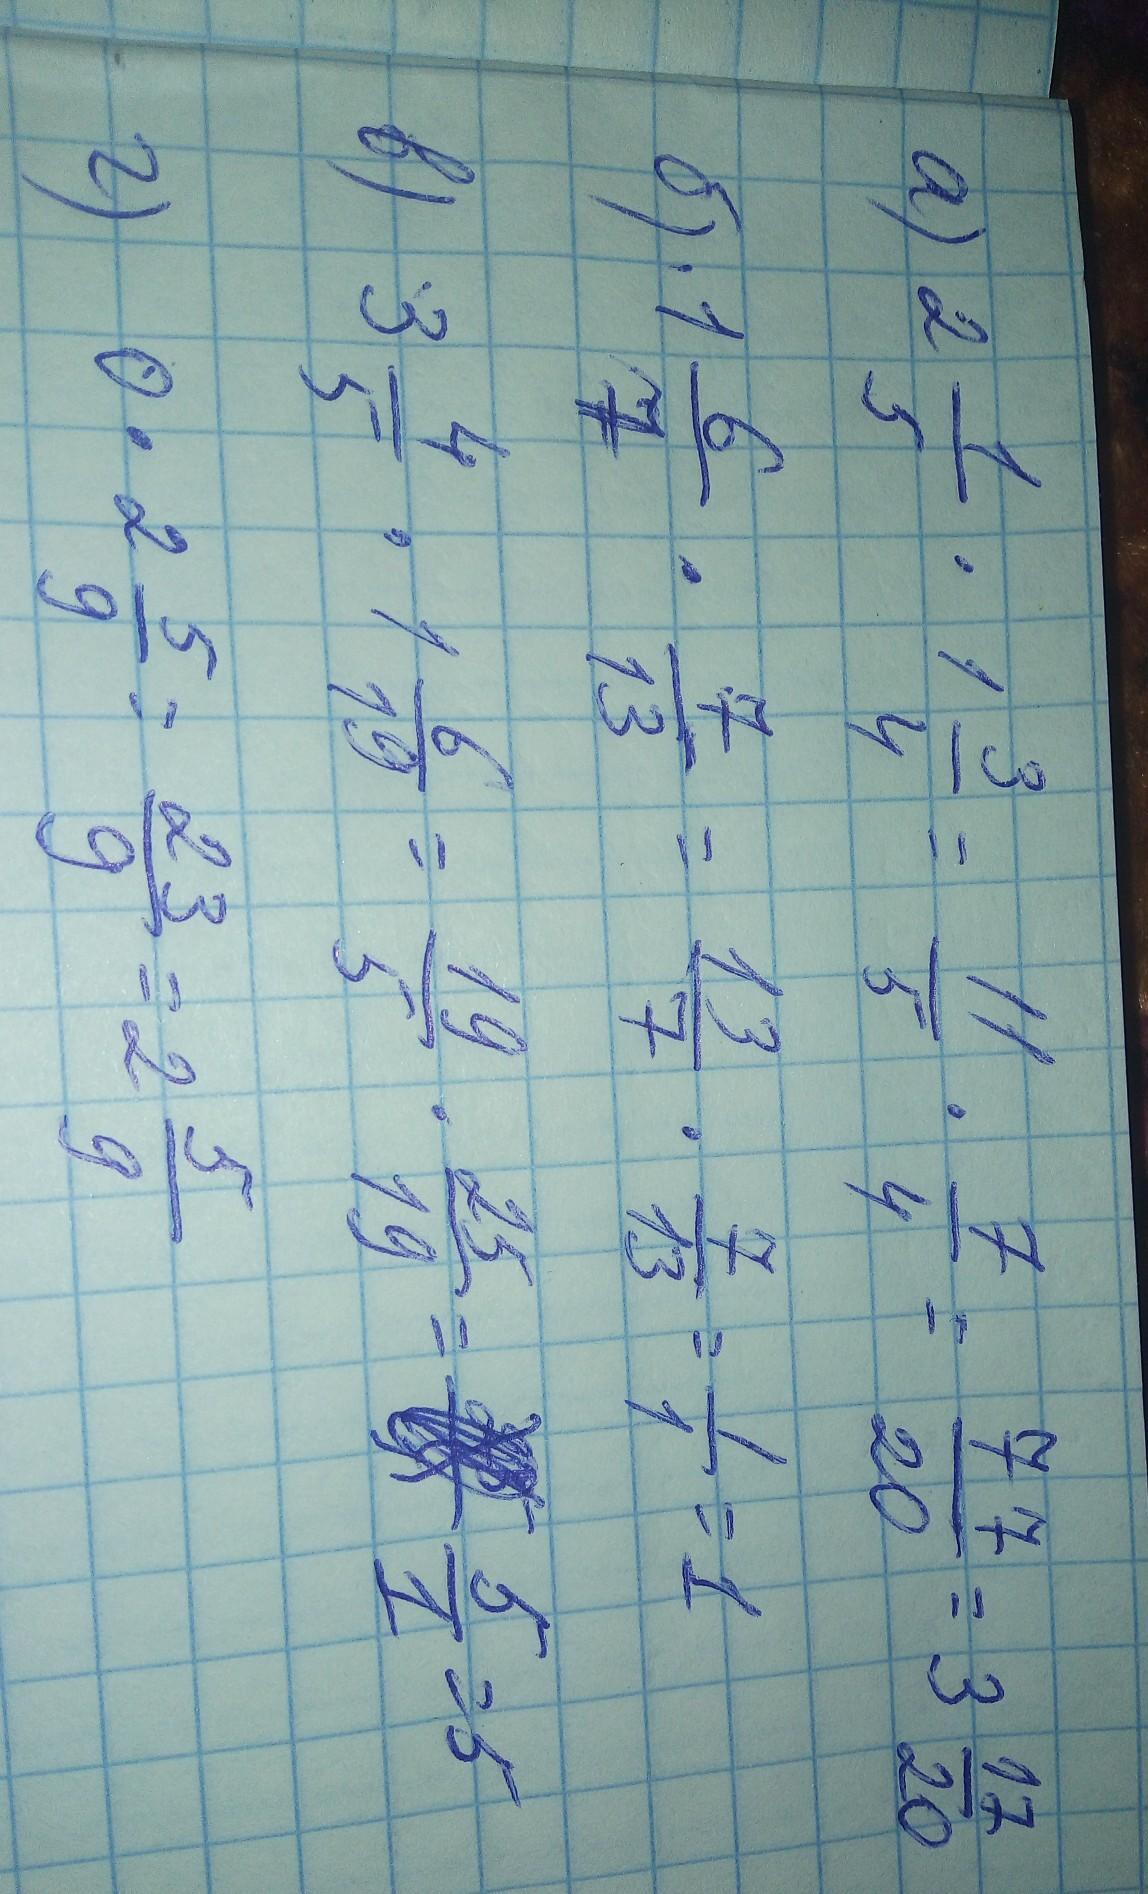 а) 2 1/5 · 1 3/4 = 11/5 · 7/4 = 77/20 = 3 17/20
б) 1 6/7 · 7/13 = 13/7 · 7/13 = 1/1 = 1
в) 3 4/5 · 1 6/19 = 19/5 · 25/19 = 5/1 = 5
г) 0 · 2 5/9 = 23/9 = 2 5/9